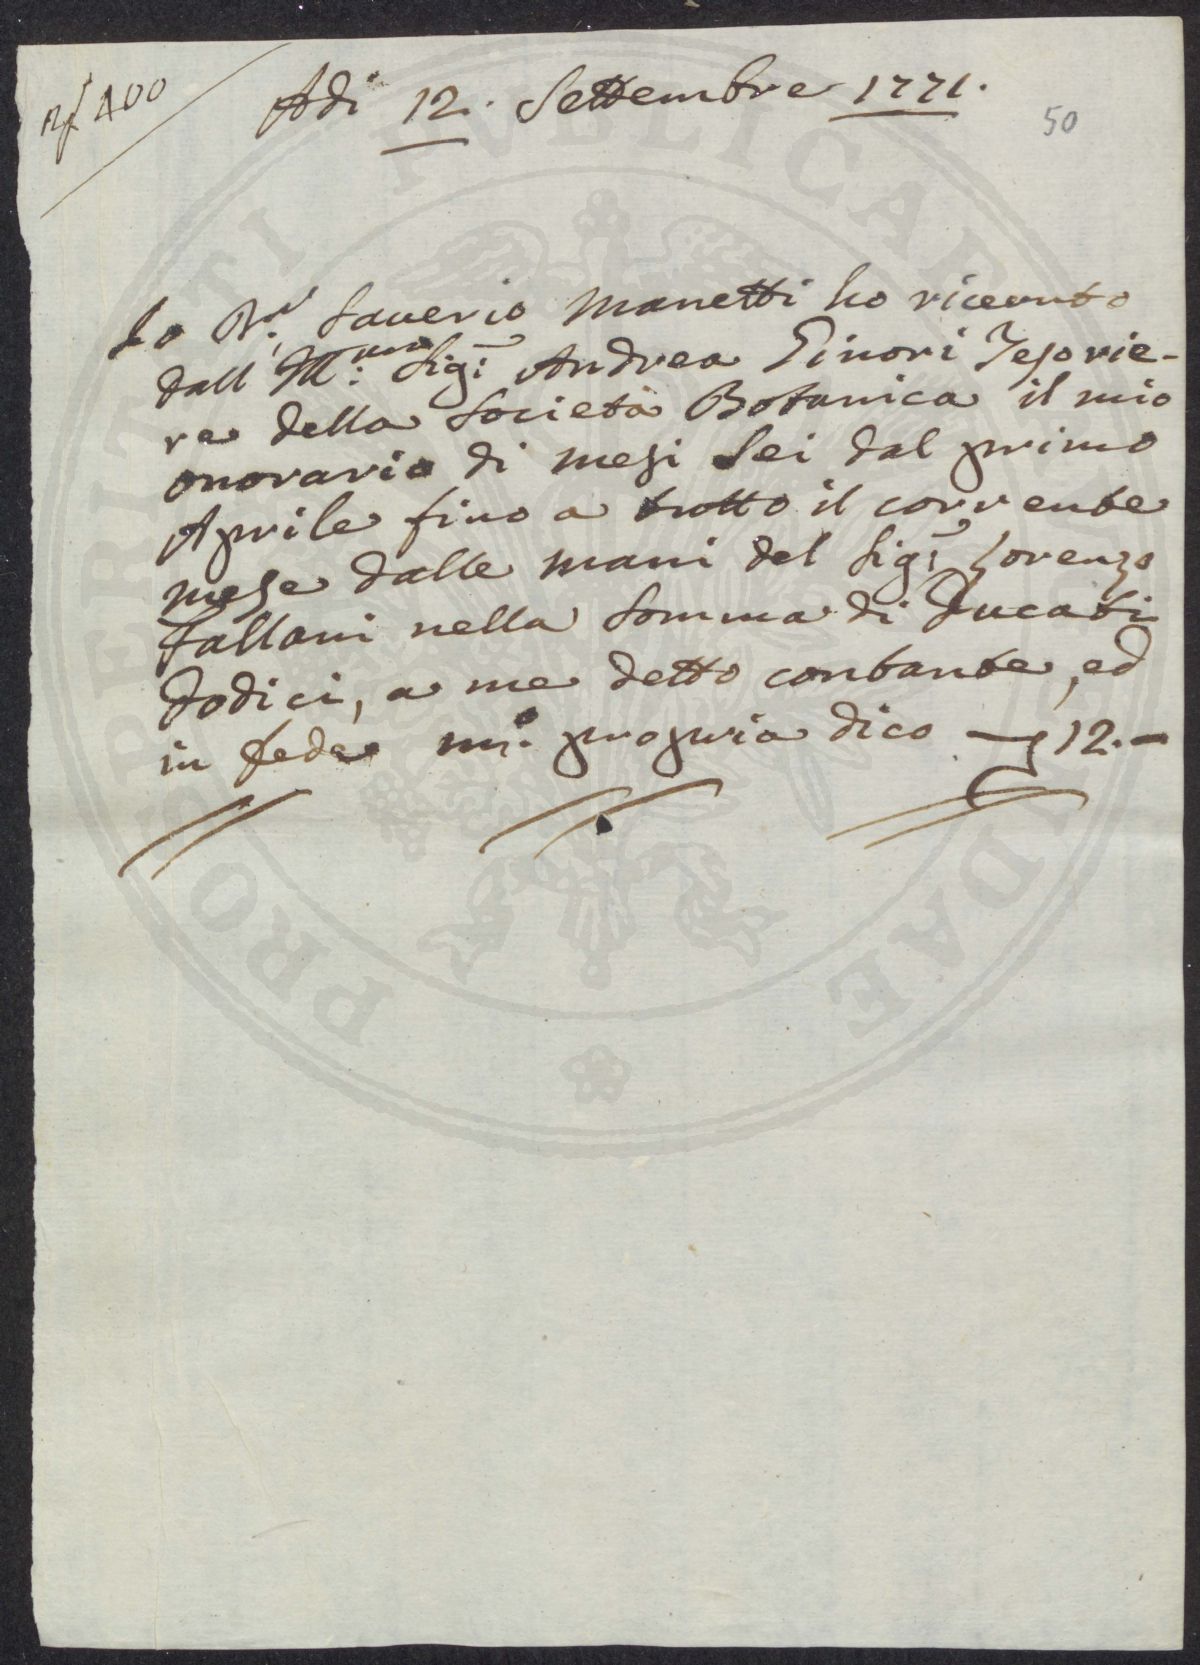 N° 400
Adi 12. Settembre 1771.
50
Io Dr. Saverio Manetti ho ricevuto
dall Ill:mo Sig: Andrea Ginori Tesorie-
re della Società Botanica il mio
onorario di mesi Sei dal primo
Aprile fino a tutto il corrente
mese dalle mani del Sig: Lorenzo
Fallani nella somma di Ducati
dodici, a me detto contante, ed
in fede mº: propria dico — 12.—
PROSPERITATI PVBLICAE AVGENDAE